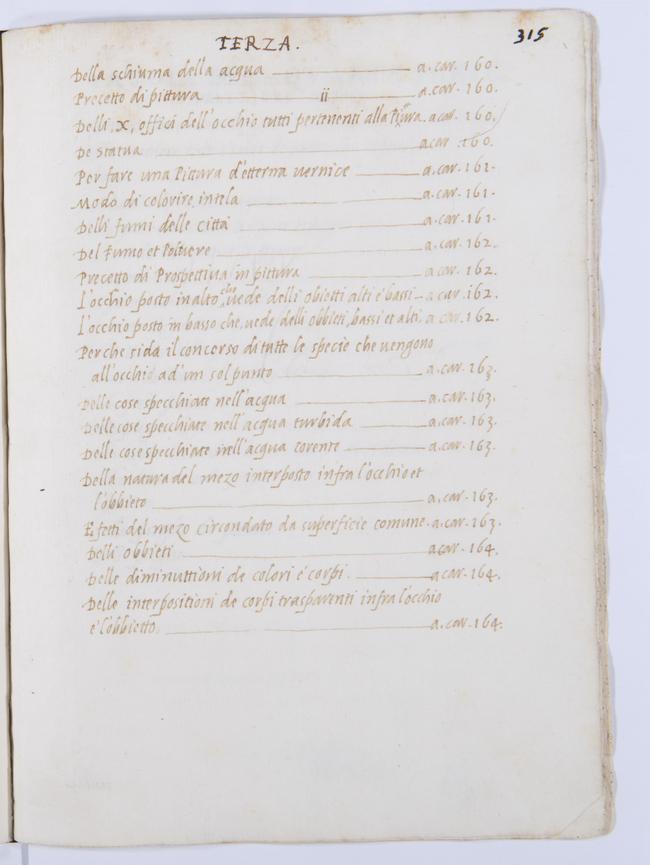 TERZA.
315
Della schiuma della acqua a.car.160.
Precetto di pittura ii a.car.160.
Delli, x, offici dell'occhio tutti pertenenti alla a.car.160.
De Statua a car .160.
Per fare una Pittura d'etterna vernice a.car.161.
Modo di colorire, intela a.car.161.
Delli fumi delle Città a.car.161.
Del fumo et Polvere a.car.162.
Precetto di Prospettiva in pittura a.car.162.
L'occhio posto in alto, che vede delli obietti alti e bassi a car.162.
L'occhio posto in basso che, uede delli obbieti, bassi et alti. a car.162.
Perche si da il concorso di tutte le specie che vengono
all'occhio ad'un sol punto a.car.163.
Delle cose specchiate nell'acqua a.car.163.
Delle cose specchiate nell'acqua turbida a.car.163.
Delle cose specchiate nell'acqua corente a.car.163.
Della natura del mezo interposto infra l'occhio et
l'obbieto a.car.163.
Effetti del mezo circondato da superficie comune. a.car.163.
Delli obbieti a car.164.
Delle diminuttioni de colori é corpi. a car.164.
Delle interpositioni de corpi trasparenti infra l'occhio
é l'obbietto. a.car.164.